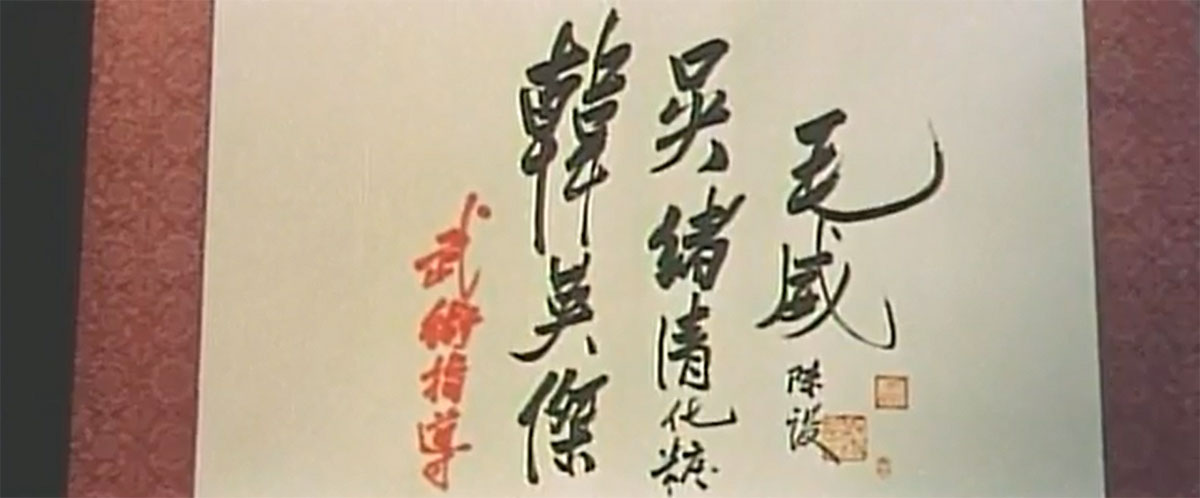 毛威陳設
吳緒清化粧
韓英傑
武術指導